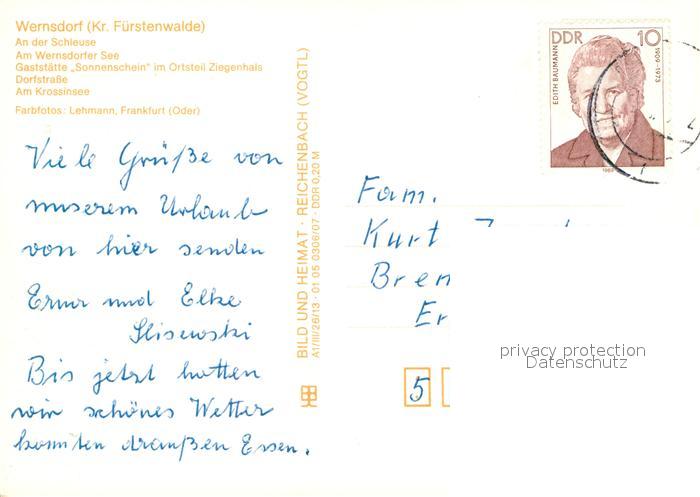 Wernsdorf (Kr. Fürstenwalde)
An der Schleuse
Am Wernsdorfer See
Gaststätte „Sonnenschein" im Ortsteil Ziegenhals
Dorfstraße
Am Krossinsee
Farbfotos: Lehmann, Frankfurt (Oder)
Viele Grüße von
unserem Urlaub
von hier senden
Erna und Elke
Slisewski
Bis jetzt hatten
wir schönes Wetter
konnten draußen Essen.
BILD UND HEIMAT · REICHENBACH (VOGTL)
A1/III/26/13 · 01 05 0306/07 · DDR 0,20 M
DDR 10
EDITH BAUMANN
1909-1973
1989
Fam.
Kurt
Bren
Er
5
privacy protection
Datenschutz